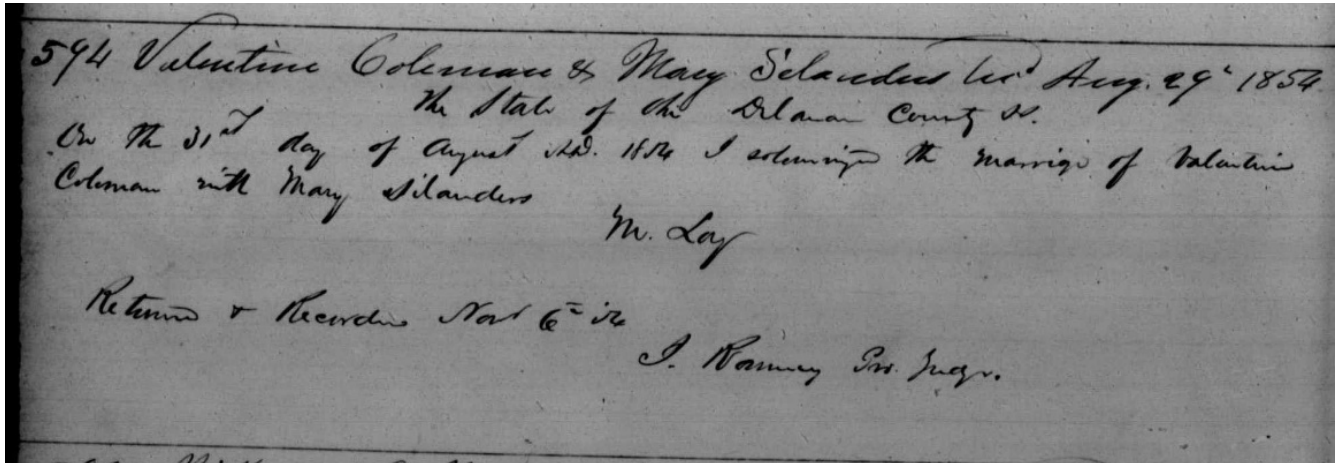 594 Valentine Coleman & Mary Silanders Lic'd Aug. 29" 1854
The State of Ohio Delawar County SS.
On the 31st day of August A.D. 1854 I solemnized the marriage of Valentine
Coleman with Mary Silanders
M. Loy
Returned & Recorded Nov 6th 54
J. Romney Pro. Judge.